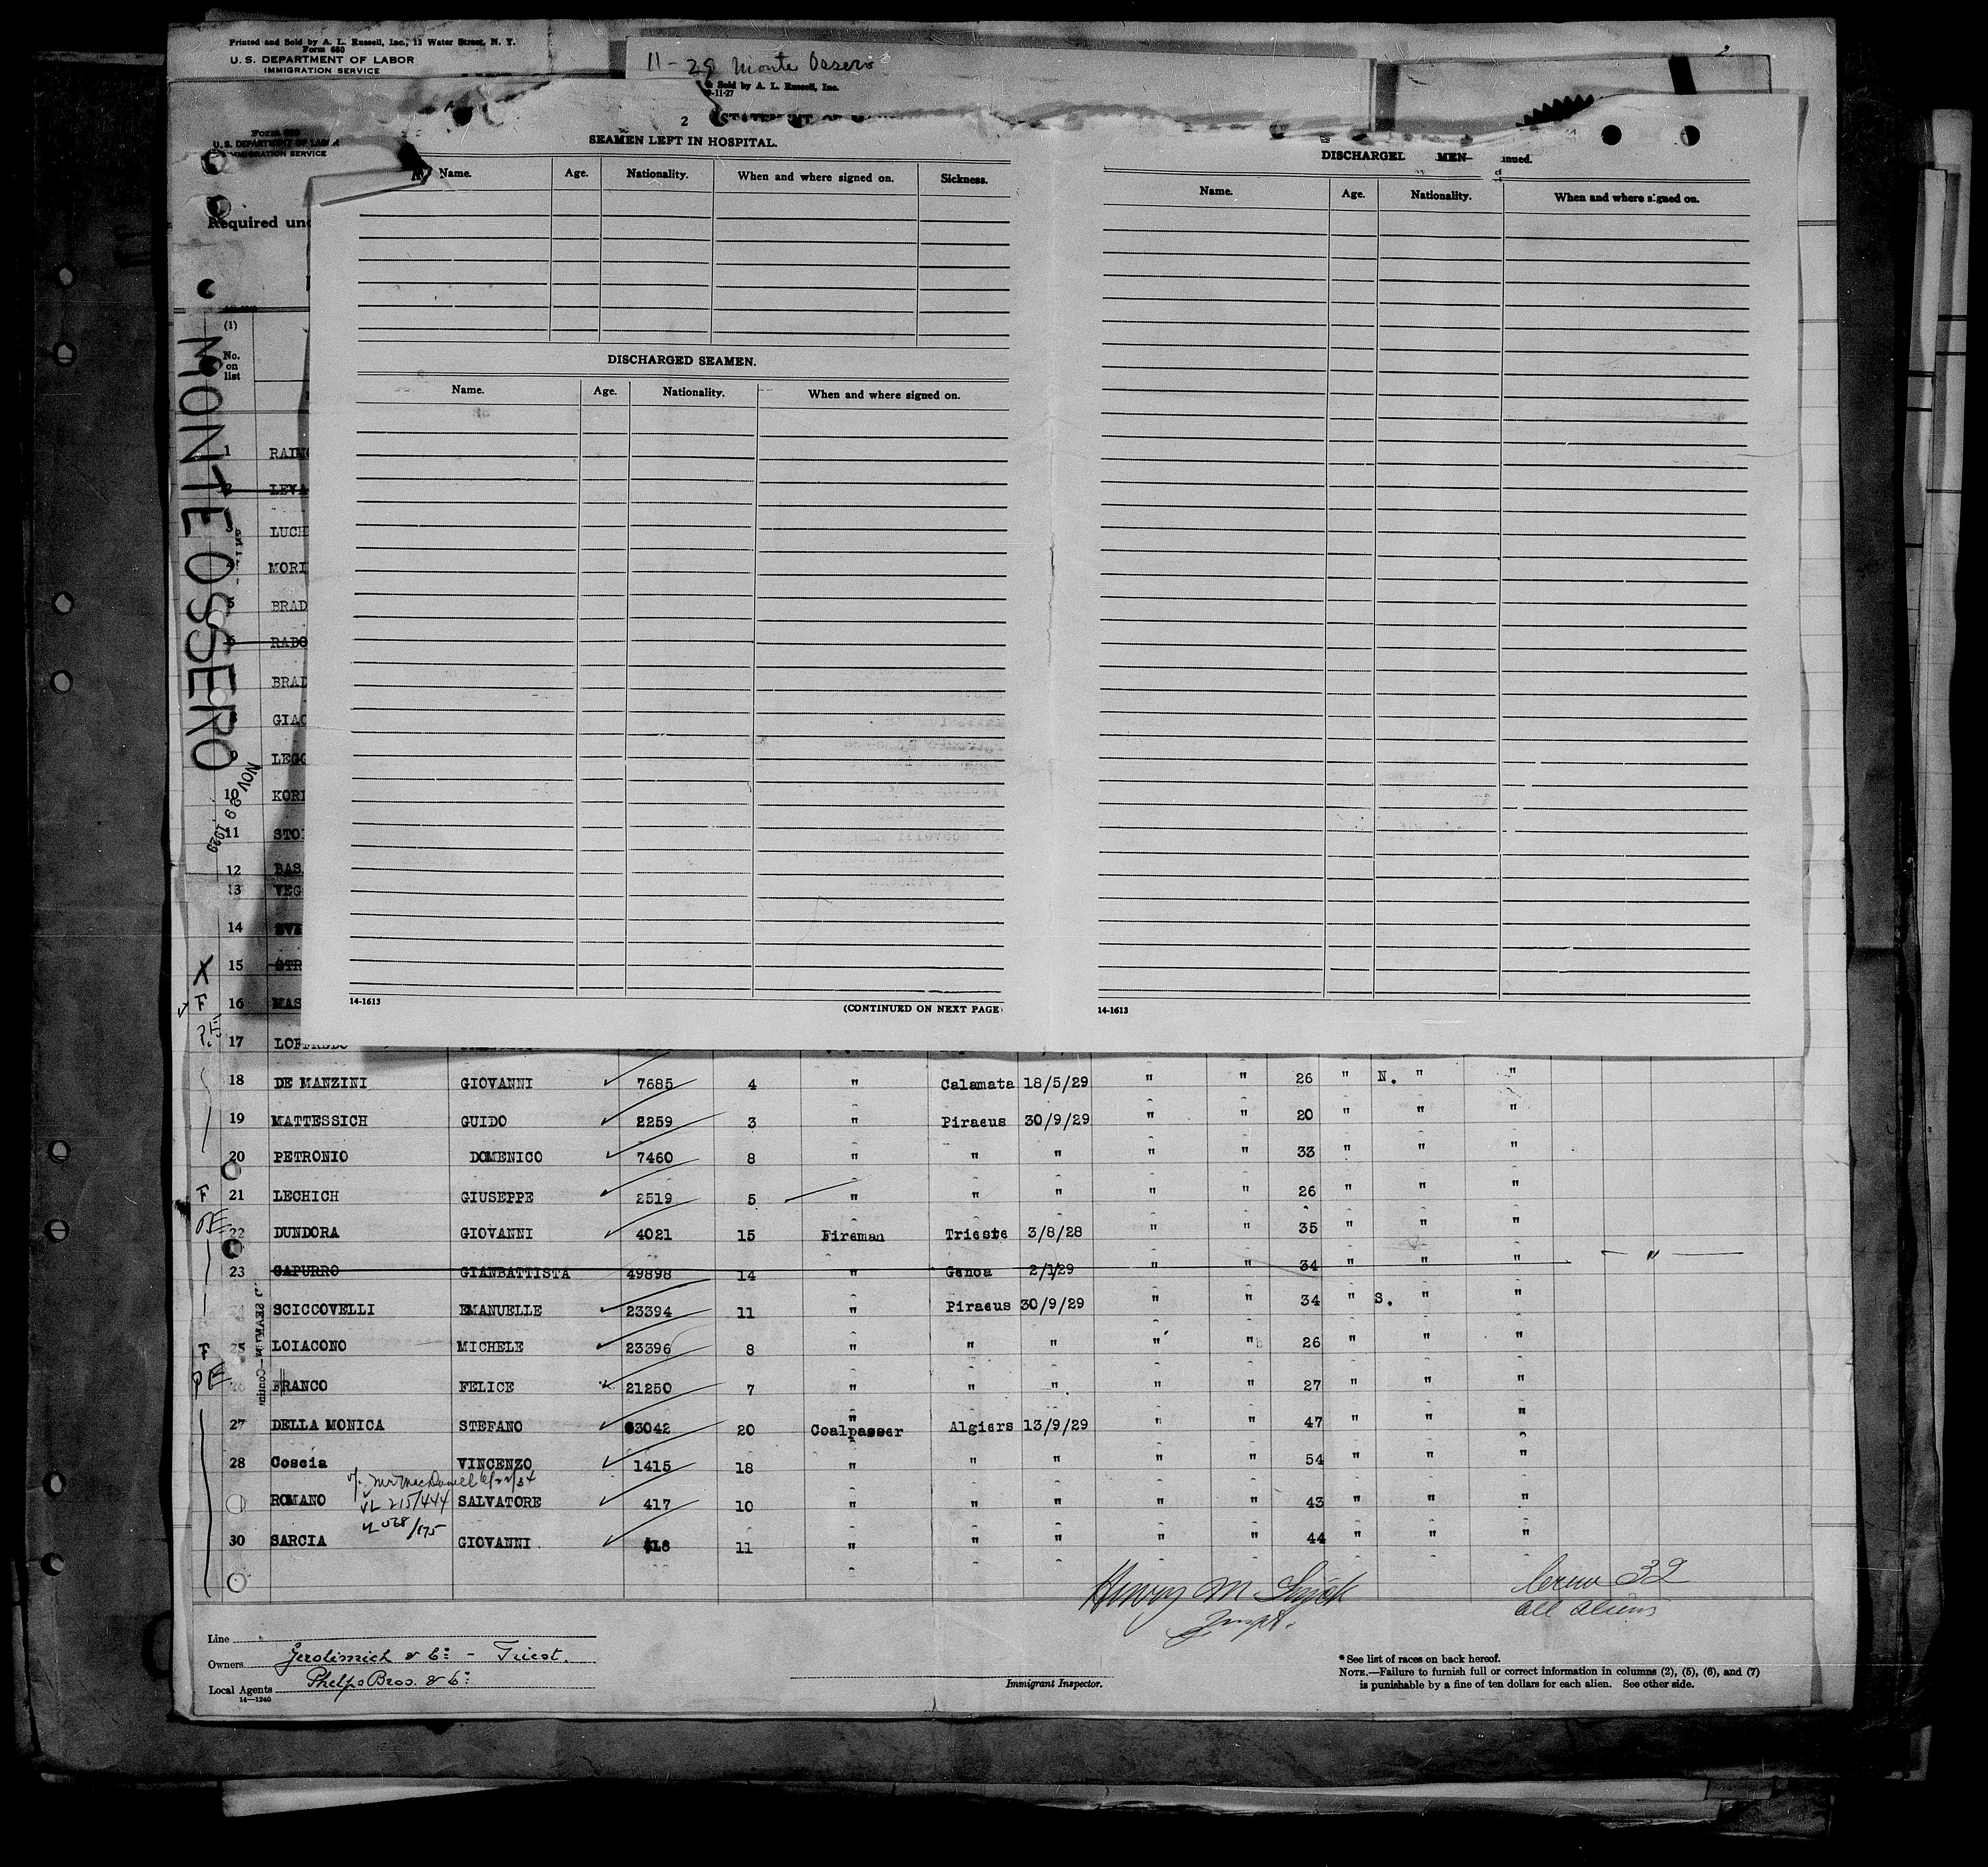 Printed and Sold by A. L. Russell, Inc., 13 Water Street, N. Y.
Form 680
U. S. DEPARTMENT OF LABOR
IMMIGRATION SERVICE
11-29 Monte Ossero
Sold by A. L. Russell, Inc.
-11-27
2
2
U. S. DEPARTMENT OF LABOR
IMMIGRATION SERVICE
Required und
SEAMEN LEFT IN HOSPITAL.
Name. Age. Nationality. When and where signed on. Sickness.
DISCHARGED SEAMEN.
Name. Age. Nationality. When and where signed on.
14-1613 (CONTINUED ON NEXT PAGE)
DISCHARGED MEN— inued.
Name. Age. Nationality. When and where signed on.
14-1613
MONTE OSSERO
NOV 29 1929
(1)
No. on list
1 RAIMO
2 LEVA
3 LUCH
4 MORI
5 BRAD
6 RADO
BRAD
GIAC
9 LEGG
10 KORI
11 STOI
12 BAS
13 VEG
14
X 15 STR
F 16 MAS
P.E. 17 LOFFREDO
18 DE MANZINI GIOVANNI 7685 4 " Calamata 18/5/29 " " 26 " N. " "
19 MATTESSICH GUIDO 2259 3 " Piraeus 30/9/29 " " 20 " " "
20 PETRONIO DOMENICO 7460 8 " " " " " 33 " " "
F 21 LECHICH GIUSEPPE 2519 5 " " " " " 26 " " "
PE 22 DUNDORA GIOVANNI 4021 15 Fireman Trieste 3/8/28 " " 35 " " "
23 CAPURRO GIANBATTISTA 49898 14 " Genoa 2/1/29 " " 34 " " " "
24 SCICCOVELLI EMANUELLE 23394 11 " Piraeus 30/9/29 " " 34 " S. " "
F 25 LOIACONO MICHELE 23396 8 " " " " " 26 " " "
PE 26 FRANCO FELICE 21250 7 " " " " " 27 " " "
27 DELLA MONICA STEFANO 63042 20 " Coalpasser Algiers 13/9/29 " " 47 " " "
28 Coscia VINCENZO 1415 18 " " " " " 54 " " "
ROMANO SALVATORE 417 10 " " " " " 43 " " "
VL 215/444
30 SARCIA GIOVANNI 418 11 " " " " " 44 " " "
Henry M
Inspt.
Crew 32
all aliens
Line
Owners Gerolimich & Co: - Triest.
Local Agents Phelps Bros. & Co:
14—1240
Immigrant Inspector.
* See list of races on back hereof.
NOTE.—Failure to furnish full or correct information in columns (2), (5), (6), and (7)
is punishable by a fine of ten dollars for each alien. See other side.